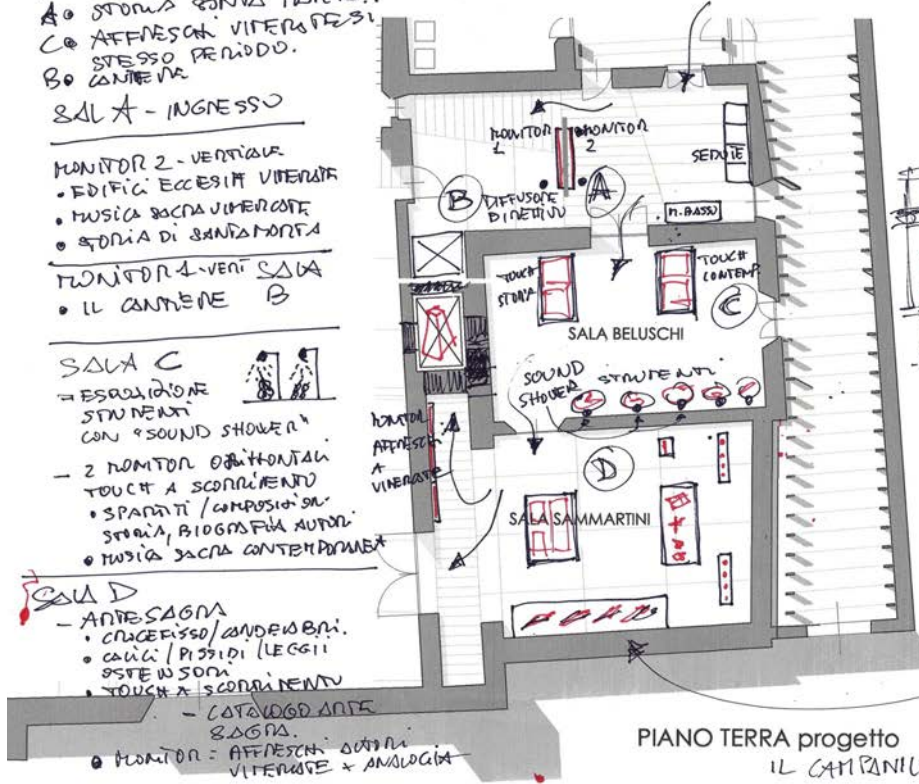 A • STORIA SANTA
C • AFFRESCHI VIMERCATESI
STESSO PERIODO.
B • CANTIERE
SALA - INGRESSO
MONITOR 2 - VERTICALE
• EDIFICI ECCESIA VIMERCATE
• MUSICA SACRA VIMERCATE
• STORIA DI SANTA MARTA
MONITOR 1 - VERT SALA
• IL CANTIERE B
SALA C
- ESPOSIZIONE
STRUMENTI
CON "SOUND SHOWER"
- 2 MONITOR ORIZZONTALI
TOUCH A SCORRIMENTO
• SPARTITI / COMPOSIZION.
STORIA, BIOGRAFIA AUTORI
• MUSICA SACRA CONTEMPORANEA
SALA D
- ARTE SACRA
• CROCEFISSO / CANDELABRI.
• CALICI / PISSIDI / LEGGII
OSTENSORI
• TOUCH A SCORRIMENTO
- CATALOGO ARTE
SACRA.
• MONITOR = AFFRESCHI AUTORI
VIMERCATE + ANALOGIA
MONITOR
1
MONITOR
2
SEDUTE
B
DIFFUSORE
DIRETTIVO
A
M. BASSO
TOUCH
STORIA
TOUCH
CONTEMP.
C
SALA BELUSCHI
SOUND
SHOWER
STRUMENTI
MONITOR
AFFRESCHI
A
VIMERCATE
D
SALA SAMMARTINI
PIANO TERRA progetto
IL CAMPANIL